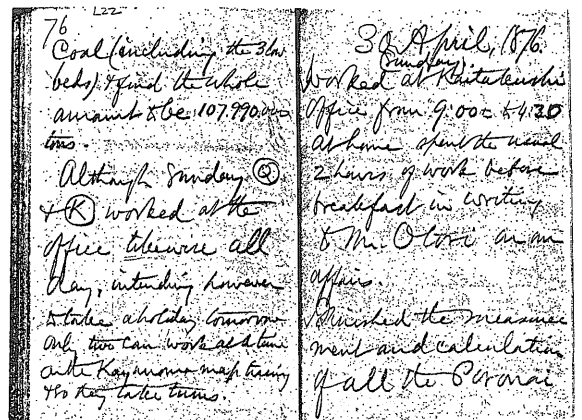 76 L22
Coal (including the 3 low
beds) & find the whole
amount to be 107.990,000
tons.
Although Sunday Q
& K worked at the
office likewise all
day, intending however
to take a holiday tomorrow
only two can work at a time
on the Kayanoma map tracing
& so they take turns.
30 April, 1876.
(Sunday)
worked at Kaitakushi
Office from 9:00 to 4:30
at home spent the usual
2 hours of work before
breakfast in writing
to Mr. Otori on our
affairs.
Finished the measure
ment and calculation
of all the Poronai